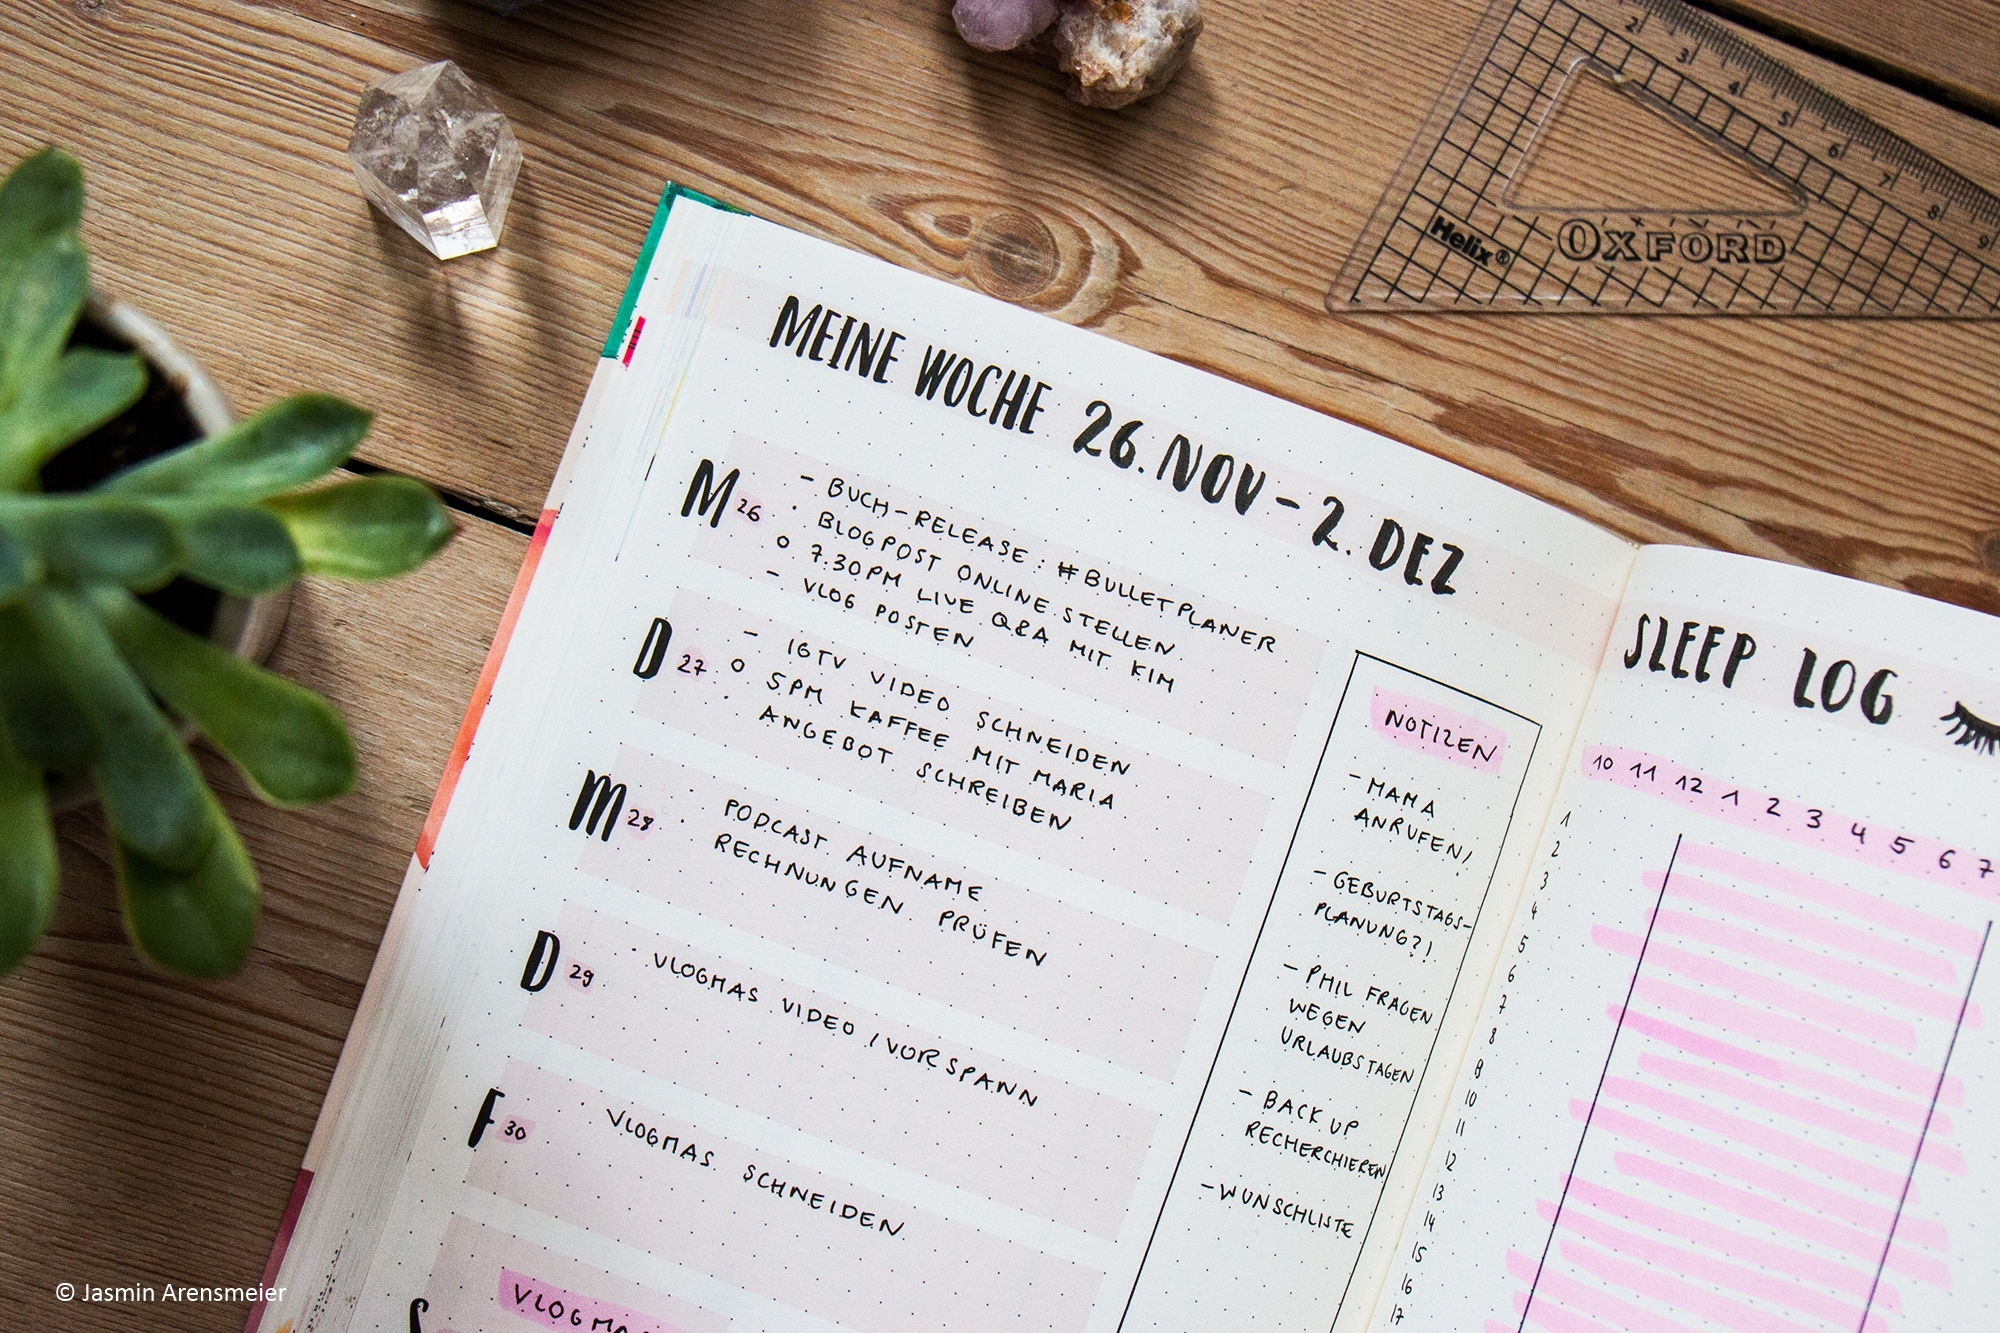 MEINE WOCHE 26. NOV - 2. DEZ
M 26
- BUCH-RELEASE: #BULLETPLANER
· BLOGPOST ONLINE STELLEN
o 7:30PM LIVE Q&A MIT KIM
- VLOG POSTEN
D 27
- IGTV VIDEO SCHNEIDEN
o 5PM KAFFEE MIT MARIA
· ANGEBOT SCHREIBEN
M 28
· PODCAST AUFNAME
· RECHNUNGEN PRÜFEN
D 29
· VLOGMAS VIDEO / VORSPANN
F 30
· VLOGMAS SCHNEIDEN
S
NOTIZEN
- MAMA
ANRUFEN!
- GEBURTSTAGS-
PLANUNG?!
- PHIL FRAGEN
WEGEN
URLAUBSTAGEN
- BACK UP
RECHERCHIEREN
- WUNSCHLISTE
SLEEP LOG
10 11 12 1 2 3 4 5 6 7
1
2
3
4
5
6
7
8
9
10
11
12
13
14
15
16
17
2 3 4 5 6 7 8 9
Helix® OXFORD
© Jasmin Arensmeier